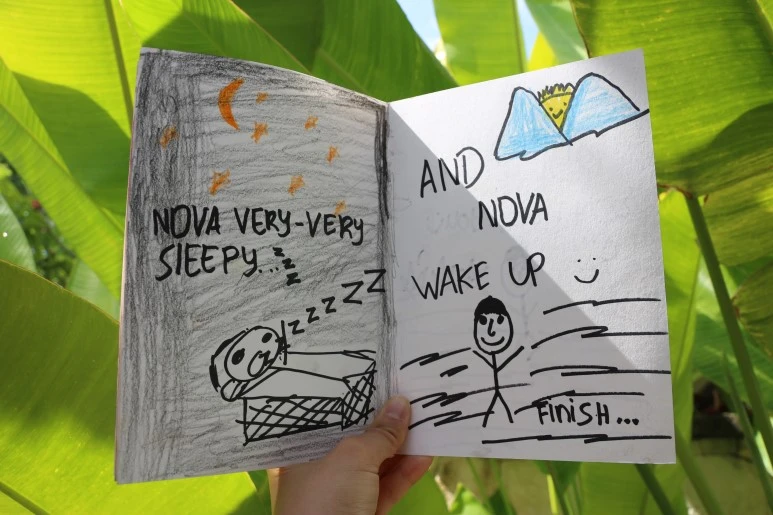 NOVA VERY-VERY
SLEEPY...zzz
zzzzzz
AND
NOVA
WAKE UP
FINISH...